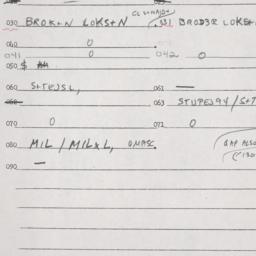 030 BROK+N LOKS+N 031 BROD3R LOKS+
040 0
041 0 042 0
050 $
060 S+TEJSL, 061 —
062 063 STUPEJ94/S+T
070 0 071 0
080 MIL/MILXL, OMASC. GAP ALSO
090 —